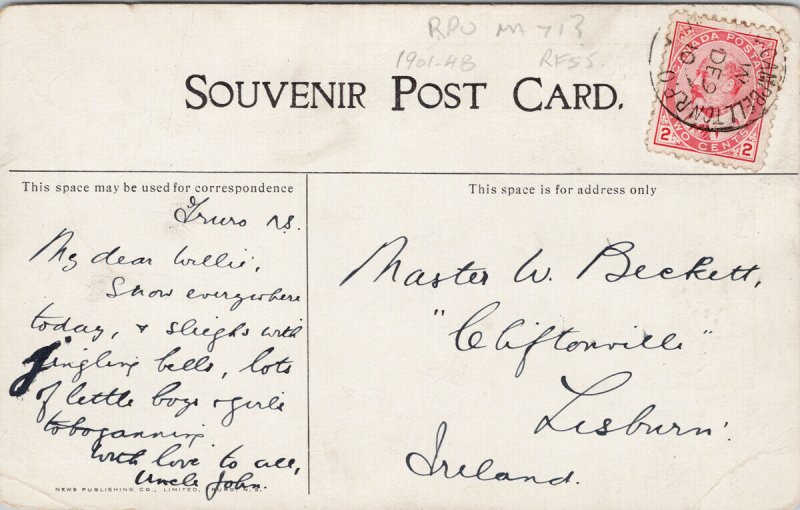 RPO MA 713
1901-48 RF55
SOUVENIR POST CARD.
CANADA POSTAGE
2 TWO CENTS 2
CAMPBELLTON R.P.O
DE 9
10
This space may be used for correspondence
Truro NS.
My dear Willie,
Snow everywhere
today, & sleighs with
jingling bells, lots
of little boys & girls
tobogganning.
With love to all,
Uncle John.
NEWS PUBLISHING CO., LIMITED, TRURO, N.S.
This space is for address only
Master W. Beckett,
"Cliftonville"
Lisburn.
Ireland.